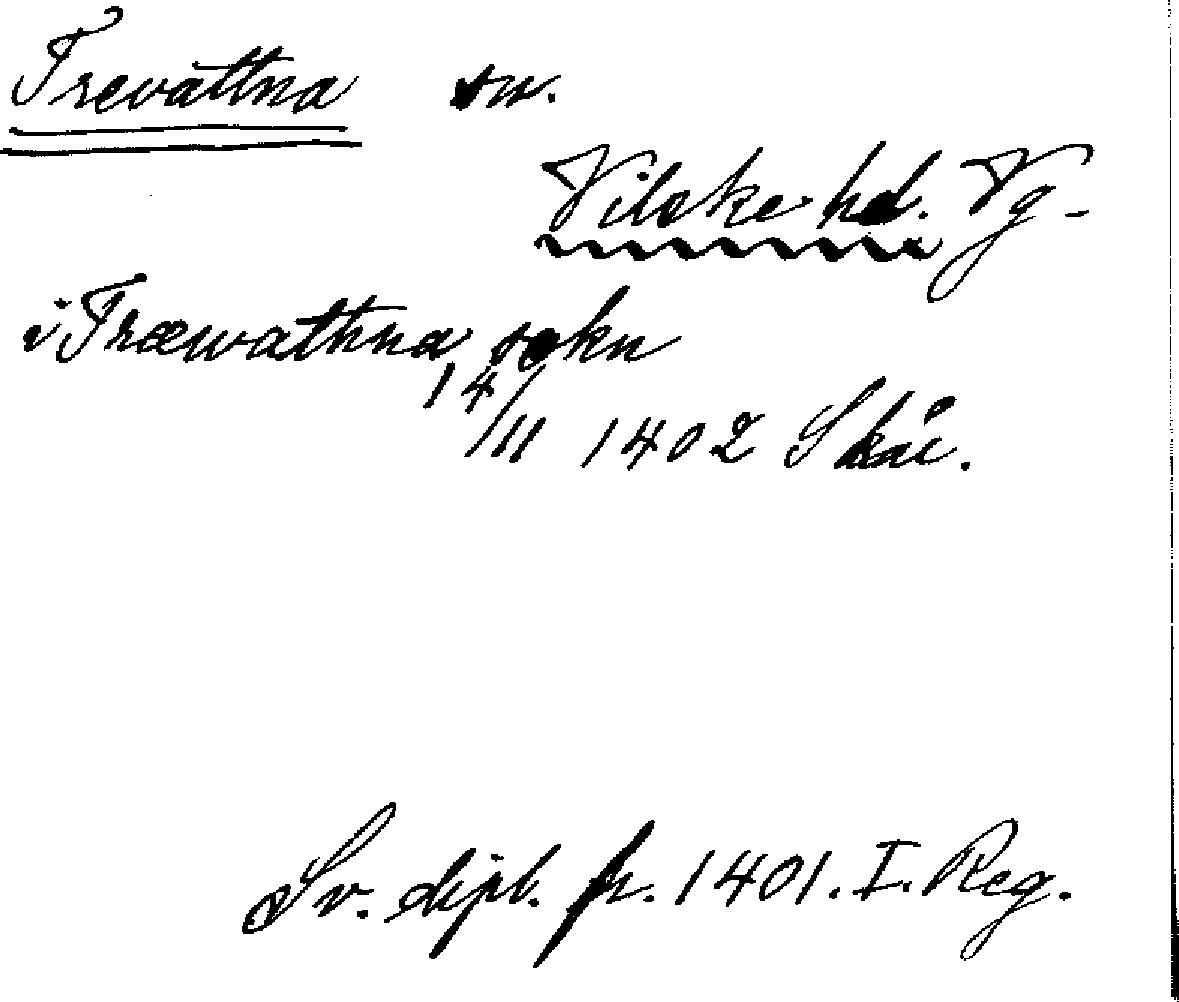 Trevattna sn.
Vilske hd. Vg-
i Træwathna sokn
14/11 1402 Skår.
Sv. dipl. fr. 1401. I. Reg.